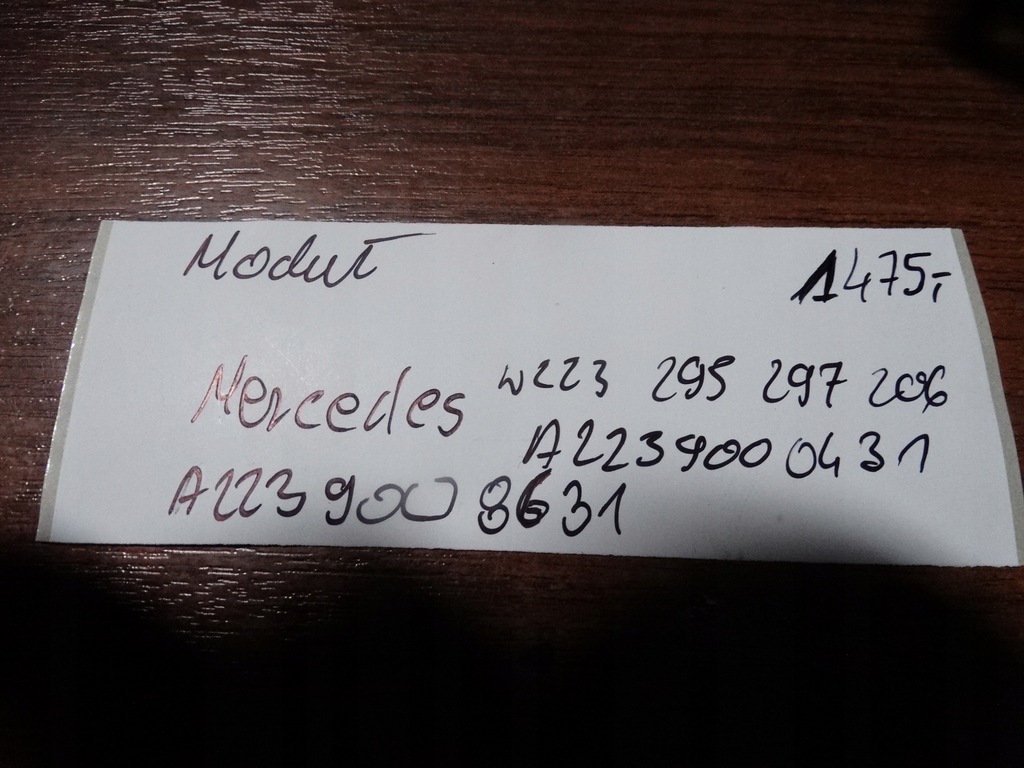 Moduł
1475,-
Mercedes W223 295 297 206
A223900 0431
A223 900 8631